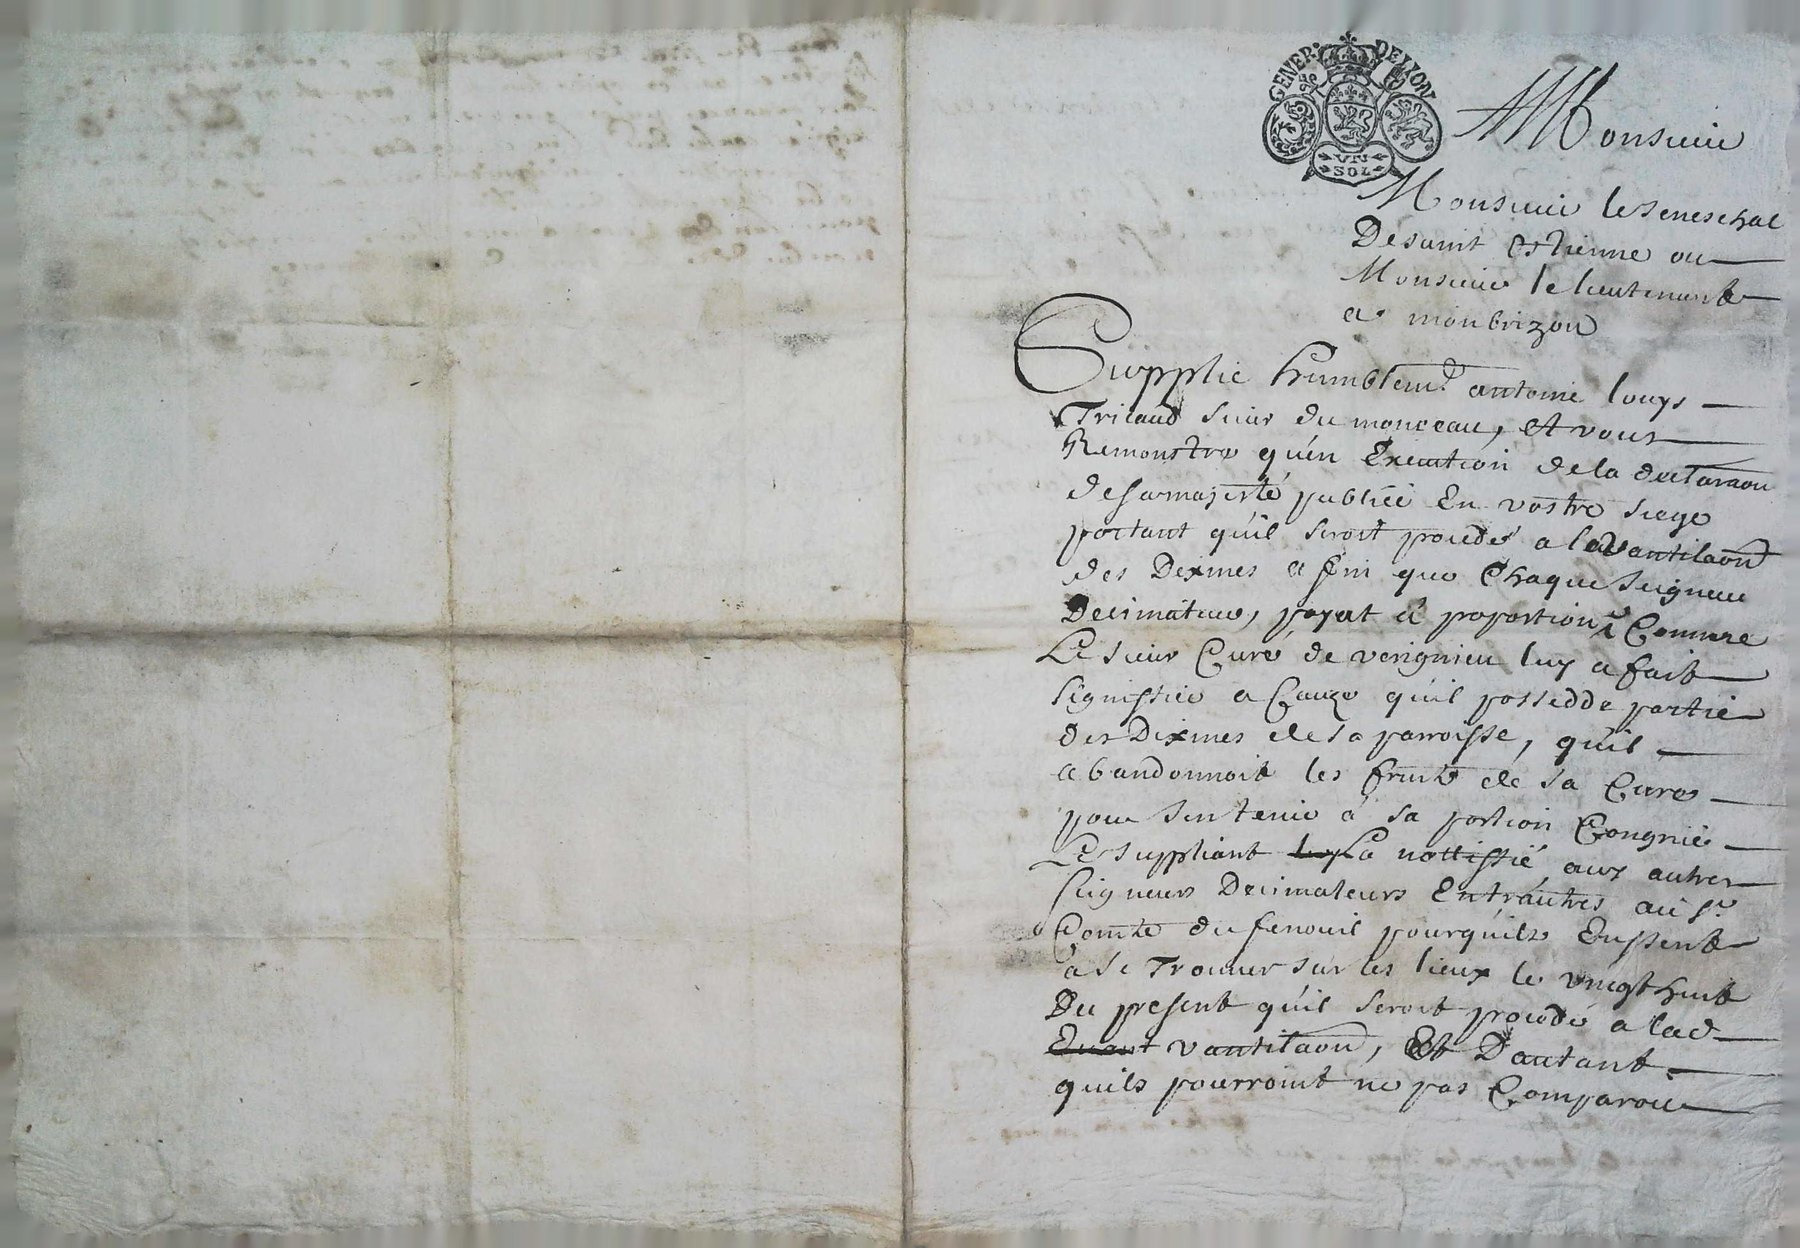 GENER. DE LYON
UN
SOL
Monsieur
Monsieur le seneschal
De saint Estienne ou
Monsieur le lieutenant
a monbrizon
Supplie humblemt. antoine louys
Tricaud sieur du monceau, et vous
Remonstre qu'en Execution de la declaraon
de sa majesté publiée En vostre siege
portant qu'il seroit procedé a l'advantilaon
des Dixmes a fin que Chaque seigneur
Decimateur, payat a proportion Comme
Le sieur Curé de verignieu luy a fait
signiffier a Cauze qu'il possedde partie
des Dixmes de sa parroisse, qu'il
abandonnoit les fruits de sa Cure
pour s'en tenir a sa portion Congrüe
Le suppliant a nottiffié aux autres
seigneurs Decimateurs Entr'autres au sr.
Comte du fenouil pourquils Eussent
a se Trouver sur les lieux le vingt huit
Du present qu'il seroit procedé a lad
vantilaon, Et D'autant
quils pourroint ne pas Comparoir